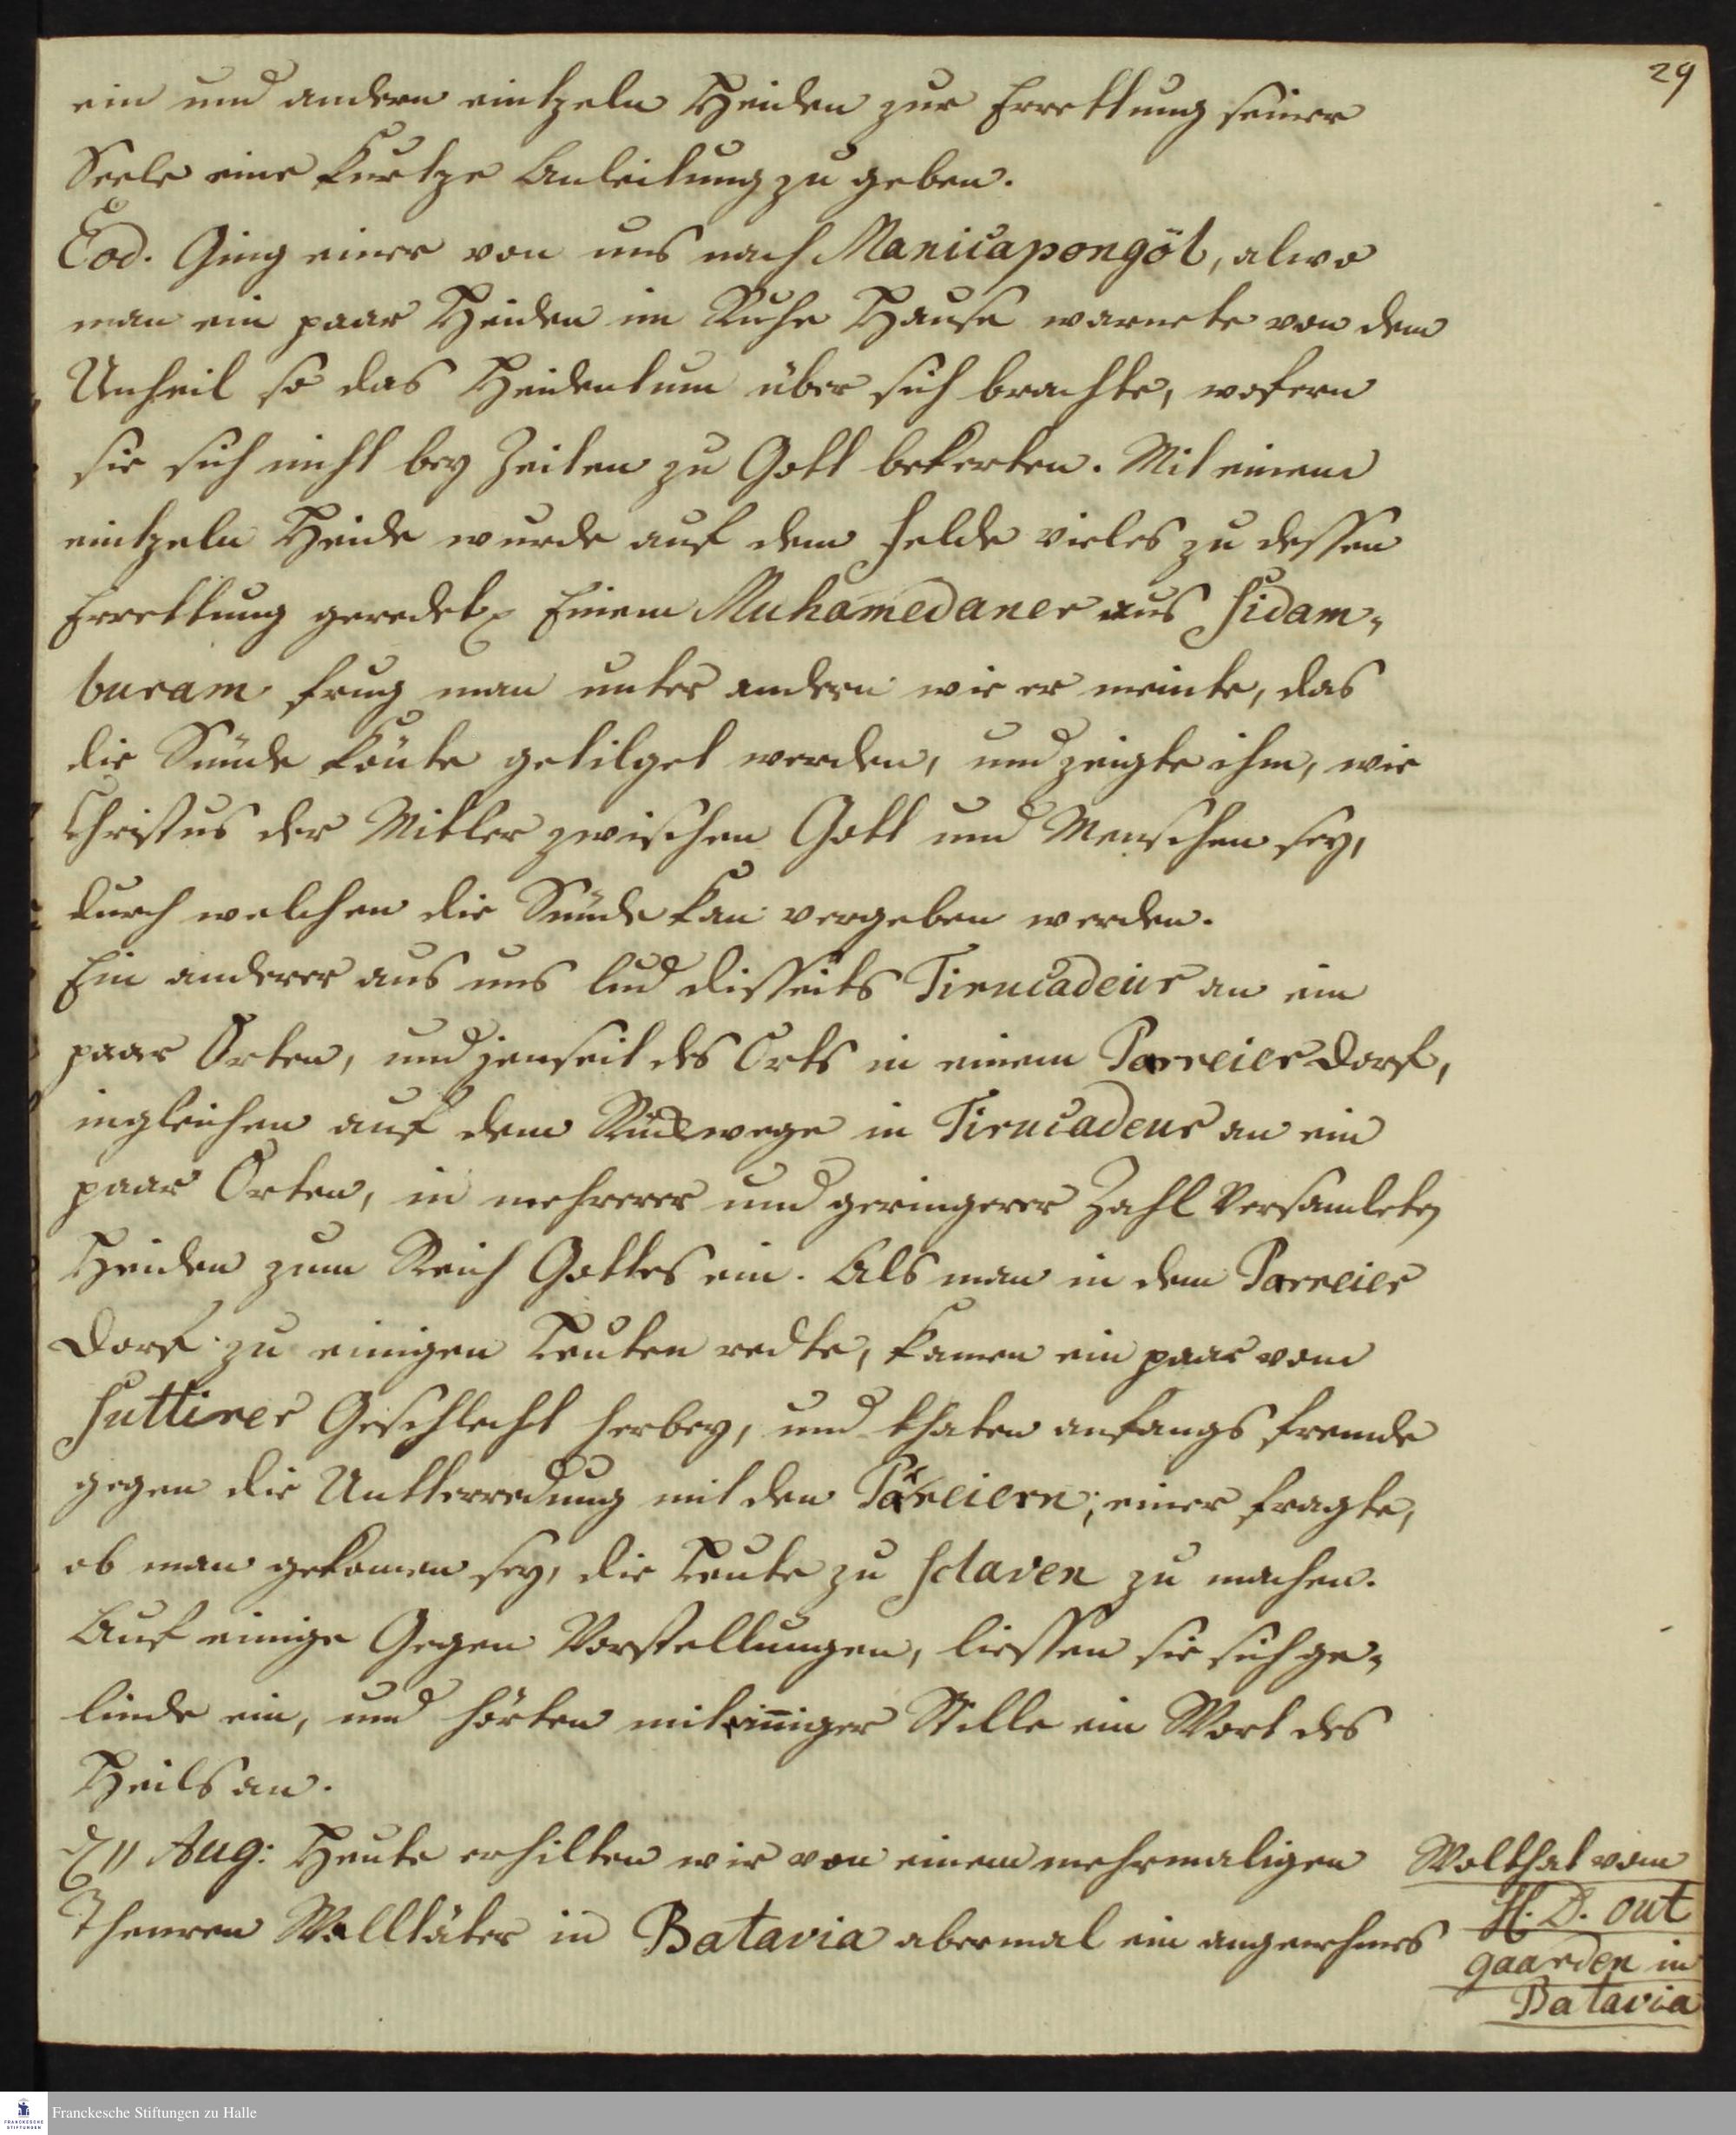 29
ein und andern eintzeln Heiden zur Errettung seiner
Seele eine kurtze Anleitung zu geben.
Eod. Ging einer von uns nach Manicapongöl, alwo
man ein paar Heiden im Ruhe Hause warnete von dem
Unheil so das Heidentum über sich brachte, wofern
sie sich nicht bey Zeiten zu Gott bekerten. Mit einem
eintzeln Heide wurde auf dem Felde vieles zu dessen
Errettung geredet. Einem Muhamedaner aus Sidam-
buram frug man unter andern wie er meinte, das
die Sünde könte getilget werden, und zeigte ihm, wie
Christus der Mitler zwischen Gott und Menschen sey,
durch welchen die Sünde kan vergeben werden.
Ein anderer aus uns lud disseits Tirucadeiur an ein
paar Orten, und jenseit des Orts in einem Parreier Dorf,
ingleichen auf dem Rückwege in Tirucadeur an ein
paar Orten, in mehrerer und geringerer Zahl versamleten
Heiden zum Reich Gottes ein. Als man in dem Parreier
Dorf zu einigen Leuten redte, kamen ein paar vom
Suttirer Geschlecht herbey, und thaten anfangs fremde
gegen die Untterredung mit den Parreiern; einer fragte,
ob man gekomen sey, die Leute zu Sclaven zu machen.
Auf einige Gegen Vorstellungen, liessen sie sich ge-
linde ein, und hörten mit einiger Stille ein Wort des
Heils an.
D 11 Aug: Heute erhilten wir von einem mehrmaligen
Theuren Walltäter in Batavia abermal ein angenehmes
Wolthat vom
H. D. out
gaarden in
Batavia
Franckesche Stiftungen zu Halle